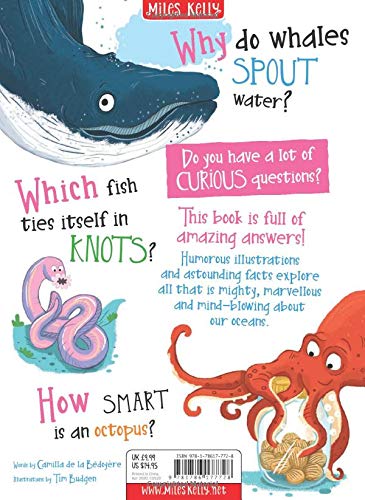 Miles Kelly
Why do whales
SPOUT
water?
Do you have a lot of
CURIOUS questions?
Which fish
ties itself in
KNOTS?
This book is full of
amazing answers!
Humorous illustrations
and astounding facts explore
all that is mighty, marvellous
and mind-blowing about
our oceans.
How SMART
is an octopus?
Words by Camilla de la Bédoyère
Illustrations by Tim Budgen
UK £9.99
US $14.95
ISBN 978-1-78617-772-8
9 781786 177728
www.MilesKelly.net